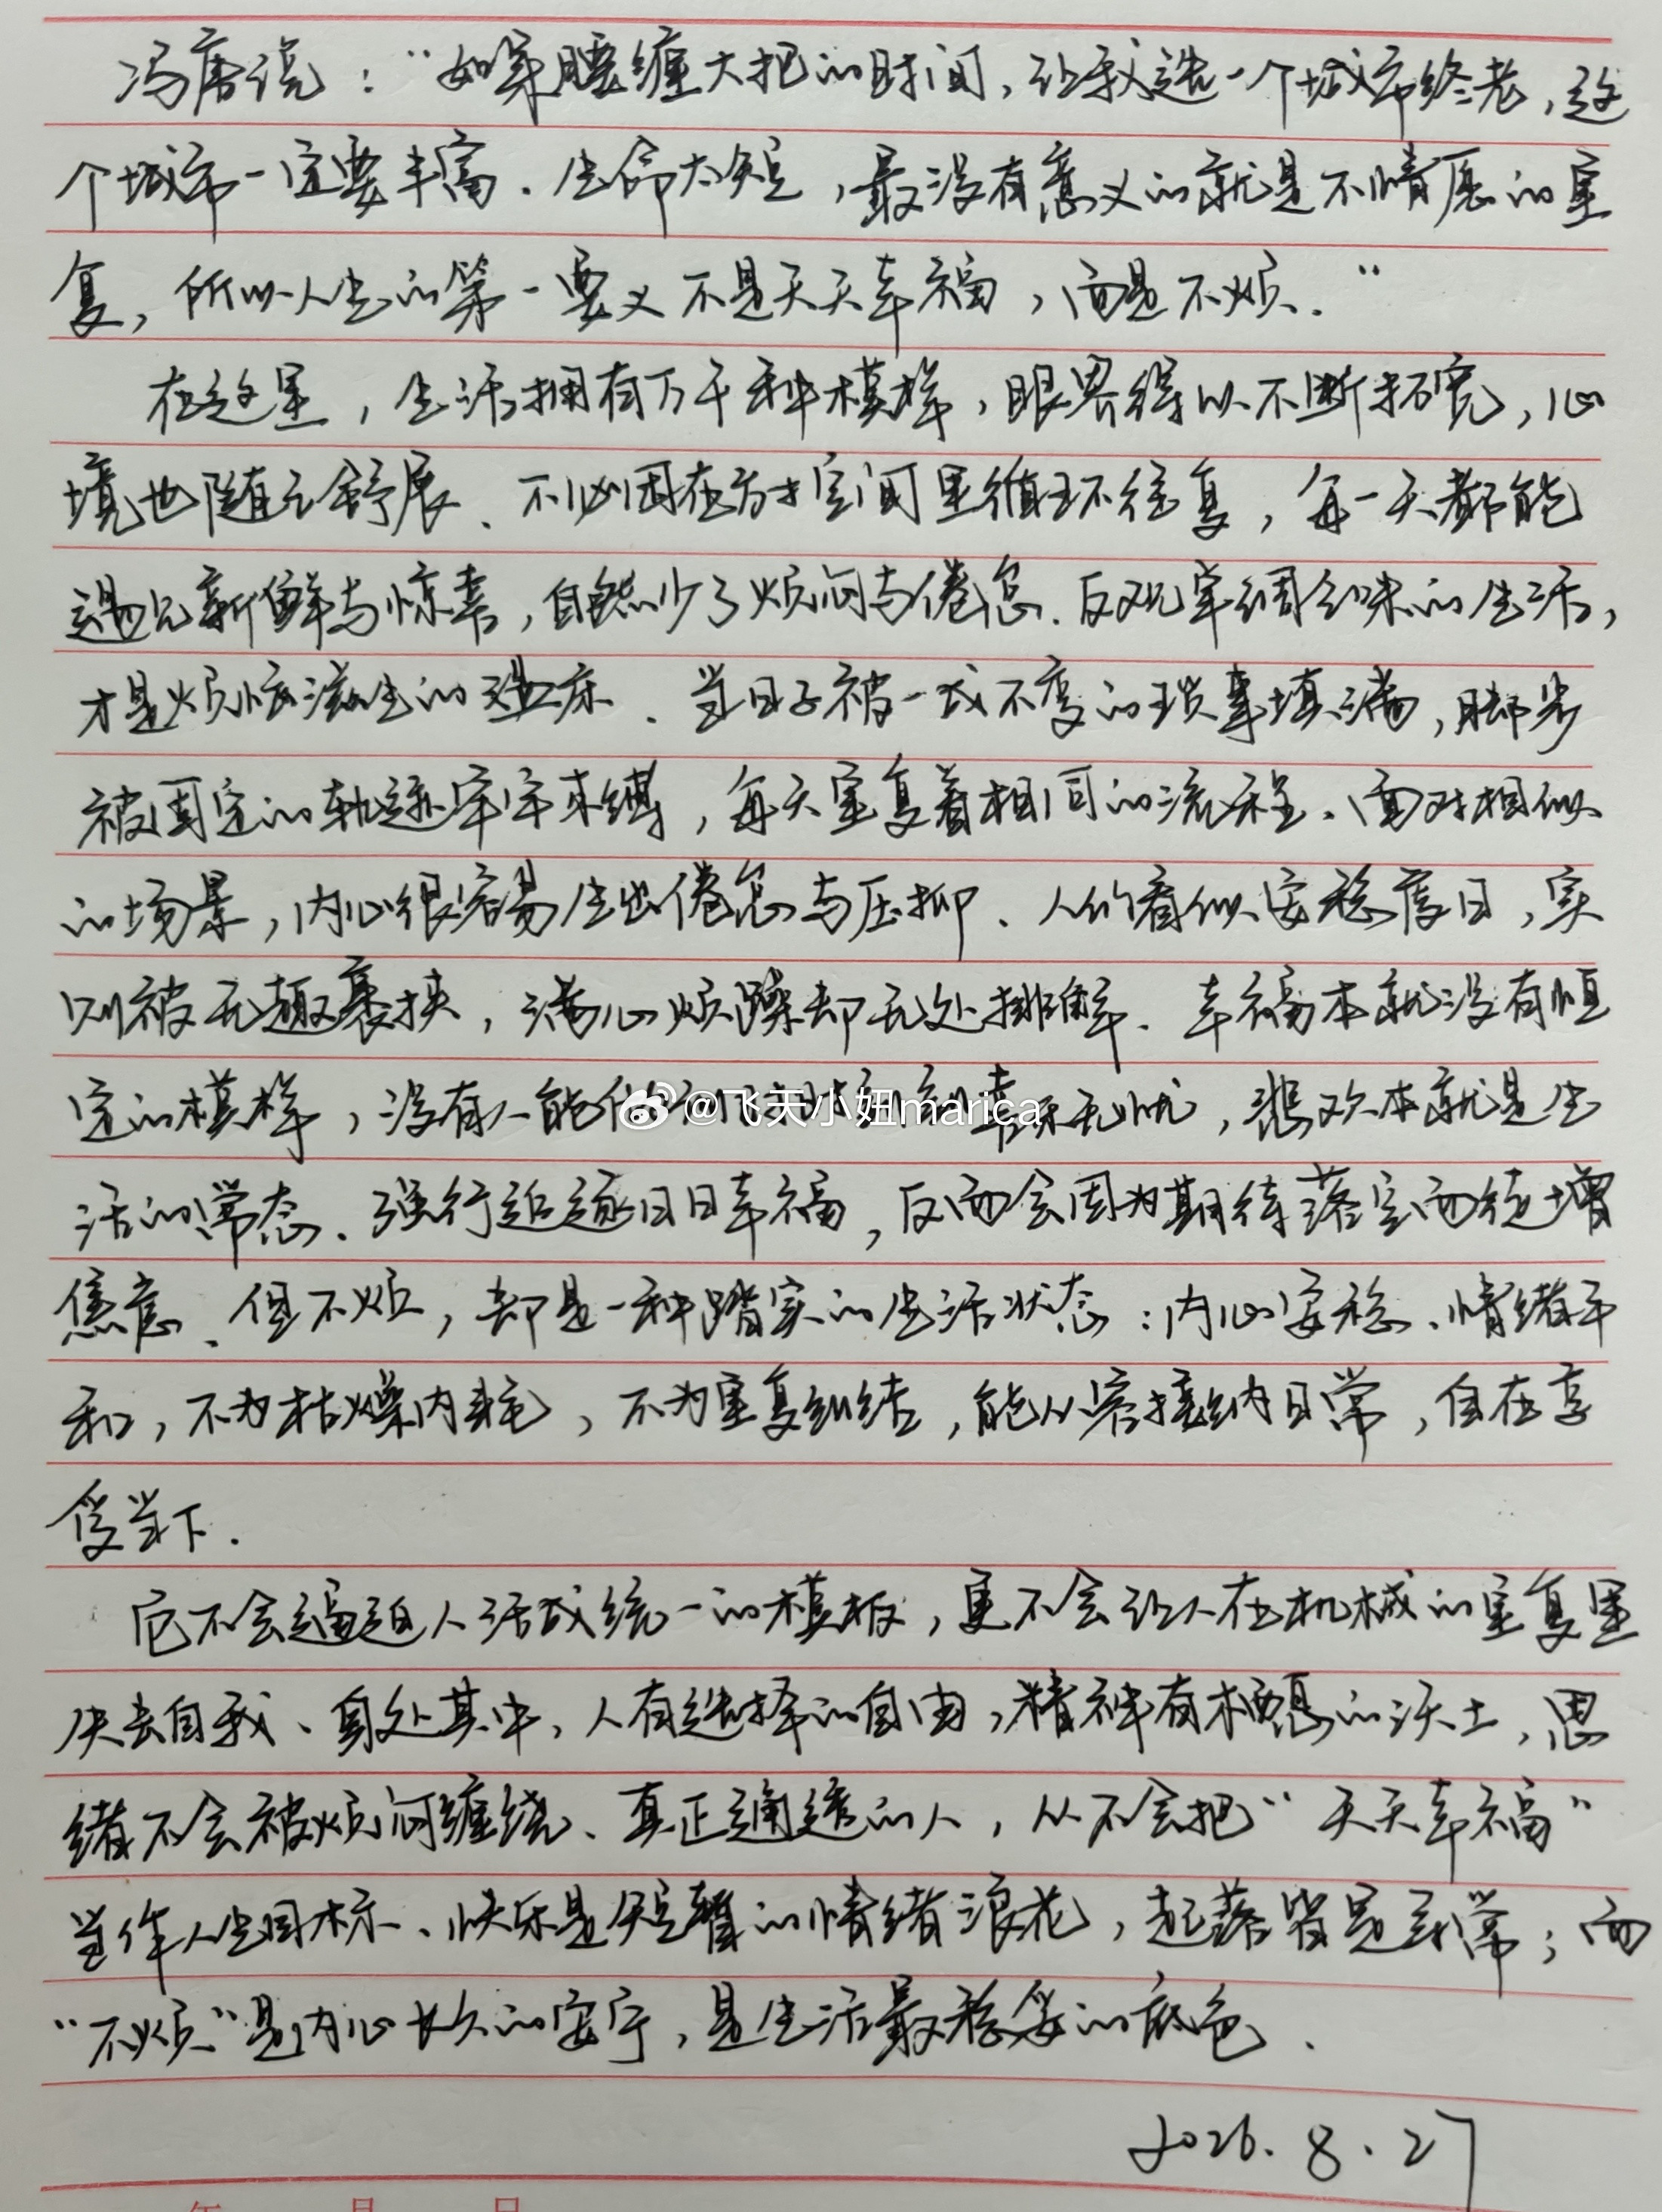 冯唐说：“如果腰缠大把的时间，让我选一个城市终老，这
个城市一定要丰富．生命太短，最没有意义的就是不情愿的重
复，所以人生的第一要义不是天天幸福，而是不烦．”
在这里，生活拥有万千种模样，眼界得以不断拓宽，心
境也随之舒展、不必困在方寸空间里循环往复，每一天都能
遇见新鲜与惊喜，自然少了烦闷与倦怠．反观单调乏味的生活，
才是烦恼滋生的温床．当日子被一成不变的琐事填满，脚步
被固定的轨迹牢牢束缚，每天重复着相同的流程、面对相似
的场景，内心很容易生出倦怠与压抑、人们看似安稳度日，实
则被无趣裹挟，满心烦躁却无处排解、幸福本就没有恒
定的模样，没有人能喜乐无忧，悲欢本就是生
活的常态、强行追逐日日幸福，反而会因为期待落空而徒增
焦虑、但不烦，却是一种踏实的生活状态：内心安稳、情绪平
和，不为枯燥内耗，不为重复纠结，能从容接纳日常，自在享
受当下．
它不会逼迫人活成统一的模板，更不会让人在机械的重复里
失去自我、身处其中，人有选择的自由，精神有栖息的沃土，思
绪不会被烦闷缠绕、真正通透的人，从不会把“天天幸福”
当作人生目标、快乐是短暂的情绪浪花，起落皆是寻常；而
“不烦”是内心长久的安宁，是生活最稳妥的底色．
2026.8.27
@飞天小妞marica
年 月 日